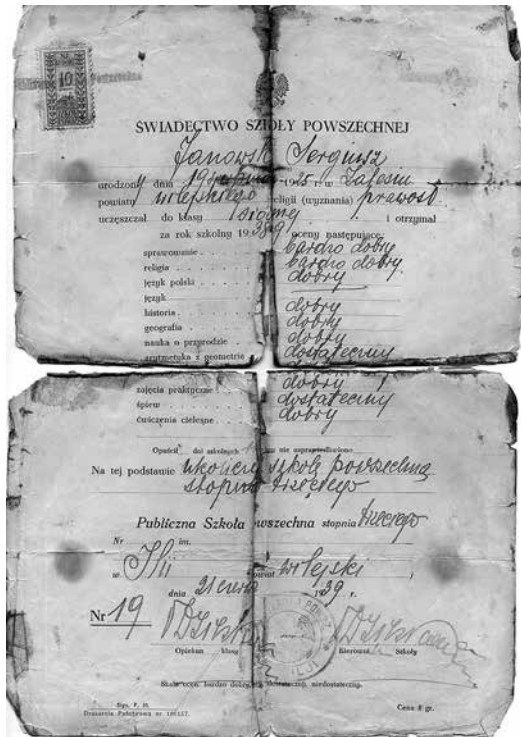 10
ŚWIADECTWO SZKOŁY POWSZECHNEJ
Janowski Sergiusz
urodzony dnia 19 1925 r. w Zalesiu
powiatu wilejskiego religii (wyznania) prawosł.
uczęszczał do klasy siódmej i otrzymał
za rok szkolny 1938/9 oceny następujące:
sprawowanie bardzo dobry
religia bardzo dobry
język polski dobry
język
historia dobry
geografia dobry
nauka o przyrodzie dobry
arytmetyka z geometrią dostateczny
dobry
zajęcia praktyczne dobry
śpiew dostateczny
ćwiczenia cielesne dobry
Opuścił dni szkolnych nie usprawiedliwiono
Na tej podstawie ukończył szkołę powszechną
stopnia trzeciego
Publiczna Szkoła Powszechna stopnia trzeciego
Nr im.
w Ilii powiat wilejski
dnia 21 czerwca 1939 r.
Nr 19
Opiekun klasy Kierownik Szkoły
Skala ocen: bardzo dobry, dobry, dostateczny, niedostateczny.
Drukarnia Państwowa nr
Cena 8 gr.